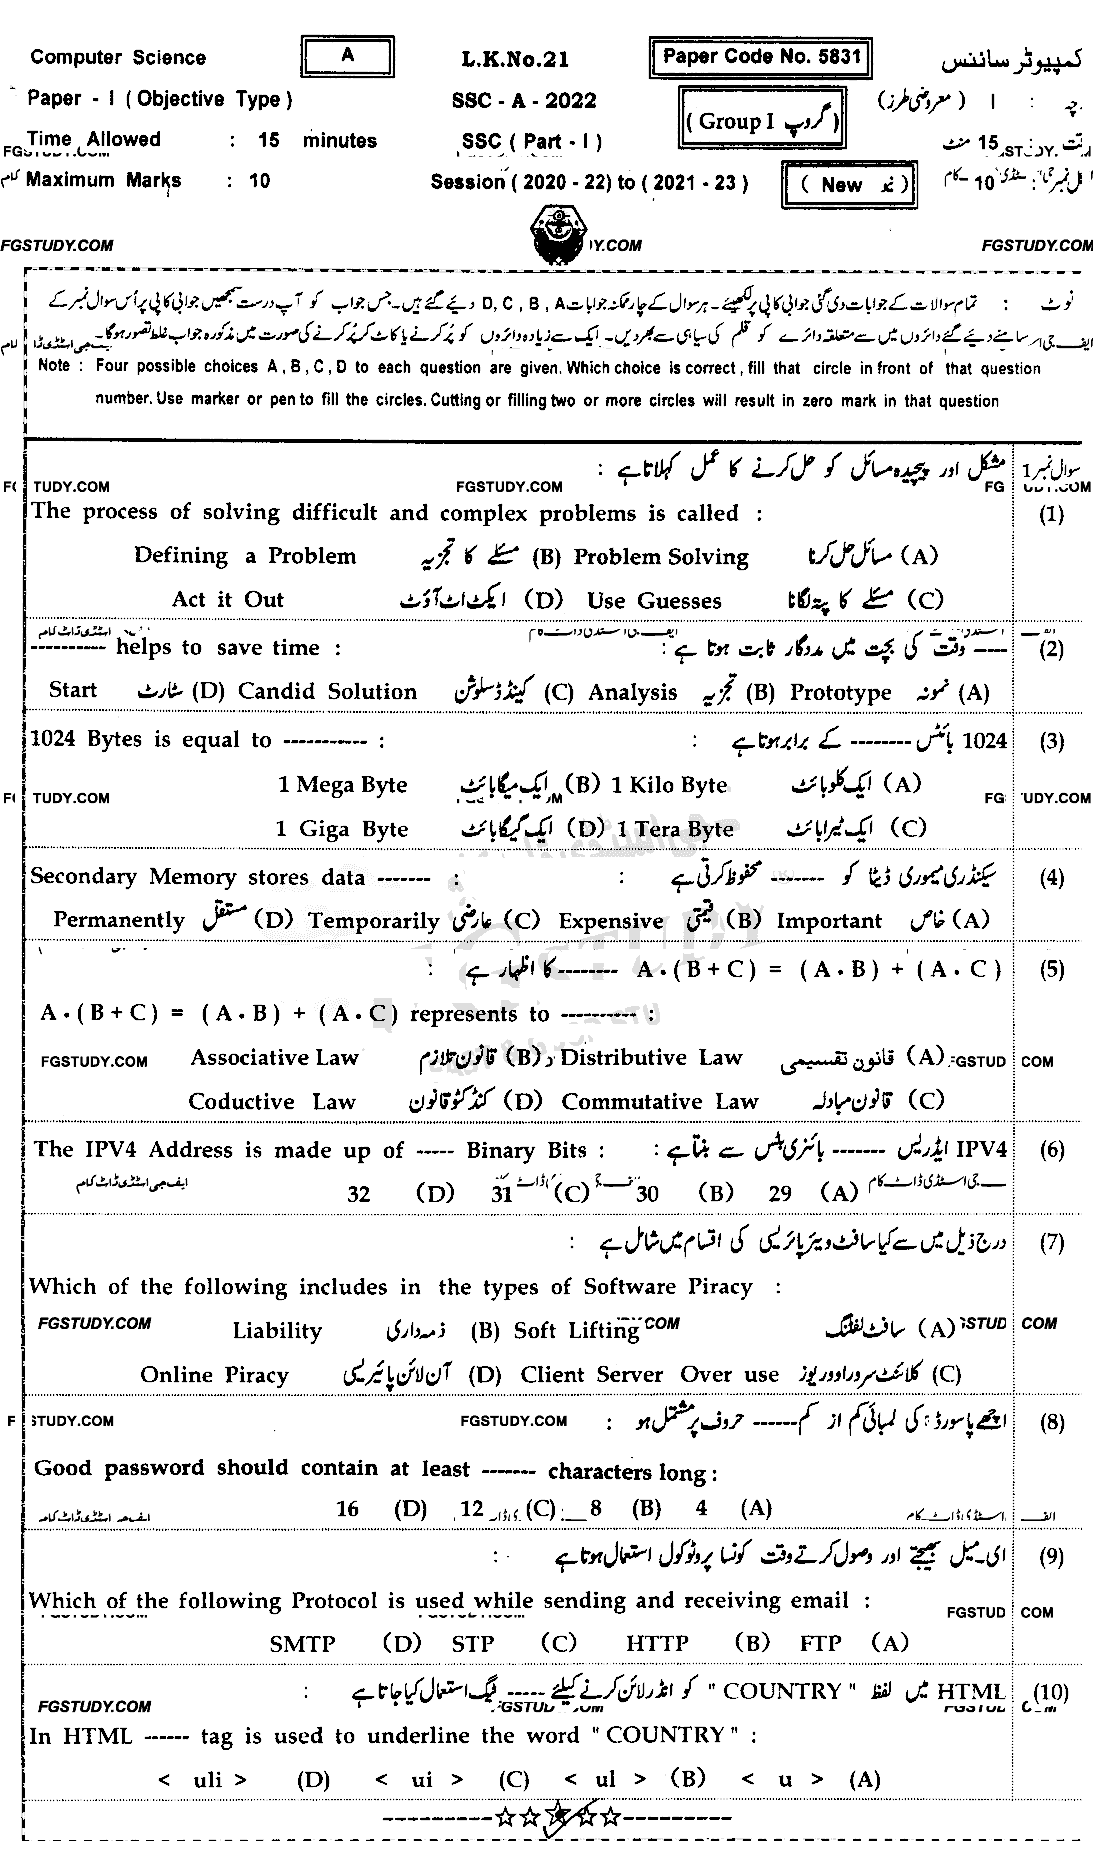 Computer Science A L.K.No.21 Paper Code No. 5831 کمپیوٹر سائنس
Paper - I ( Objective Type ) SSC - A - 2022 ( Group I گروپ ) چہ : I ( معروضی طرز )
Time Allowed : 15 minutes SSC ( Part - I ) 15 منٹ
Maximum Marks : 10 Session ( 2020 - 22 ) to ( 2021 - 23 ) ( New نیو ) 10
FGSTUDY.COM Y.COM FGSTUDY.COM
نوٹ : تمام سوالات کے جوابات دی گئی جوابی کاپی پر لکھیئے۔ ہر سوال کے چار ممکنہ جوابات D, C, B, A دیے گئے ہیں۔ جس جواب کو آپ درست سمجھیں جوابی کاپی پر اُس سوال نمبر کے
سامنے دیے گئے دائروں میں سے متعلقہ دائرے کو قلم کی سیاہی سے بھر دیں۔ ایک سے زیادہ دائروں کو پُر کرنے یا کاٹ کر پُر کرنے کی صورت میں مذکورہ جواب غلط تصور ہوگا۔
Note : Four possible choices A , B , C , D to each question are given. Which choice is correct , fill that circle in front of that question
number. Use marker or pen to fill the circles. Cutting or filling two or more circles will result in zero mark in that question
سوال نمبر 1 مشکل اور پیچیدہ مسائل کو حل کرنے کا عمل کہلاتا ہے :
TUDY.COM FGSTUDY.COM FG
The process of solving difficult and complex problems is called : (1)
Defining a Problem مسئلے کا تجزیہ (B) Problem Solving مسائل حل کرنا (A)
Act it Out ایکٹ اٹ آؤٹ (D) Use Guesses مسئلے کا پتہ لگانا (C)
---------- helps to save time : ---- وقت کی بچت میں مددگار ثابت ہوتا ہے : (2)
Start سٹارٹ (D) Candid Solution کینڈڈ سلوشن (C) Analysis تجزیہ (B) Prototype نمونہ (A)
1024 Bytes is equal to ----------- : 1024 بائٹس -------- کے برابر ہوتا ہے : (3)
1 Mega Byte ایک میگا بائٹ (B) 1 Kilo Byte ایک کلو بائٹ (A)
TUDY.COM FG TUDY.COM
1 Giga Byte ایک گیگا بائٹ (D) 1 Tera Byte ایک ٹیرا بائٹ (C)
Secondary Memory stores data ------- : سیکنڈری میموری ڈیٹا کو ------- محفوظ کرتی ہے : (4)
Permanently مستقل (D) Temporarily عارضی (C) Expensive قیمتی (B) Important خاص (A)
A . ( B + C ) = ( A . B ) + ( A . C ) -------- کا اظہار ہے : (5)
A . ( B + C ) = ( A . B ) + ( A . C ) represents to ---------- :
FGSTUDY.COM Associative Law قانون تلازم (B) Distributive Law قانون تقسیمی (A) FGSTUD COM
Coductive Law کنڈکٹو قانون (D) Commutative Law قانون مبادلہ (C)
The IPV4 Address is made up of ----- Binary Bits : IPV4 ایڈریس ------- بائنری بٹس سے بنتا ہے : (6)
32 (D) 31 (C) 30 (B) 29 (A)
درج ذیل میں سے کیا سافٹ ویئر پائریسی کی اقسام میں شامل ہے : (7)
Which of the following includes in the types of Software Piracy :
FGSTUDY.COM Liability ذمہ داری (B) Soft Lifting COM سافٹ لفٹنگ (A) STUD COM
Online Piracy آن لائن پائریسی (D) Client Server Over use کلائنٹ سرور اوور یوز (C)
STUDY.COM FGSTUDY.COM اچھے پاسورڈ کی لمبائی کم از کم ------ حروف پر مشتمل ہو : (8)
Good password should contain at least ------- characters long :
16 (D) 12 (C) 8 (B) 4 (A)
ای۔میل بھیجتے اور وصول کرتے وقت کونسا پروٹوکول استعمال ہوتا ہے : (9)
Which of the following Protocol is used while sending and receiving email :
FGSTUD COM
SMTP (D) STP (C) HTTP (B) FTP (A)
HTML میں لفظ " COUNTRY " کو انڈر لائن کرنے کیلئے ----- ٹیگ استعمال کیا جاتا ہے : (10)
FGSTUDY.COM
In HTML ------ tag is used to underline the word " COUNTRY " :
< uli > (D) < ui > (C) < ul > (B) < u > (A)